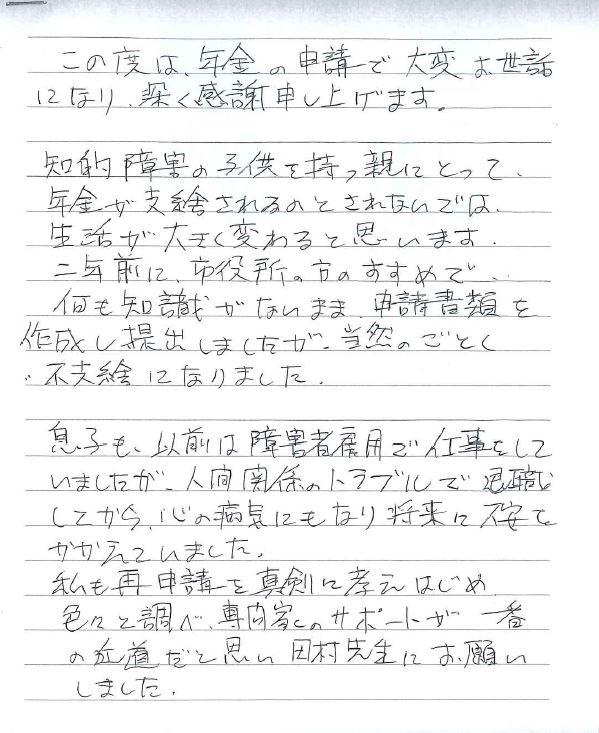 この度は、年金の申請で大変お世話
になり、深く感謝申し上げます。
知的障害の子供を持つ親にとって、
年金が支給されるのとされないでは、
生活が大きく変わると思います。
二年前に、市役所の方のすすめで、
何も知識がないまま、申請書類を
作成し提出しましたが、当然のごとく
不支給になりました。
息子も、以前は障害者雇用で仕事をして
いましたが、人間関係のトラブルで退職
してから、心の病気にもなり将来に不安を
かかえていました。
私も再申請を真剣に考えはじめ
色々と調べ、専門家のサポートが一番
の近道だと思い田村先生にお願い
しました。